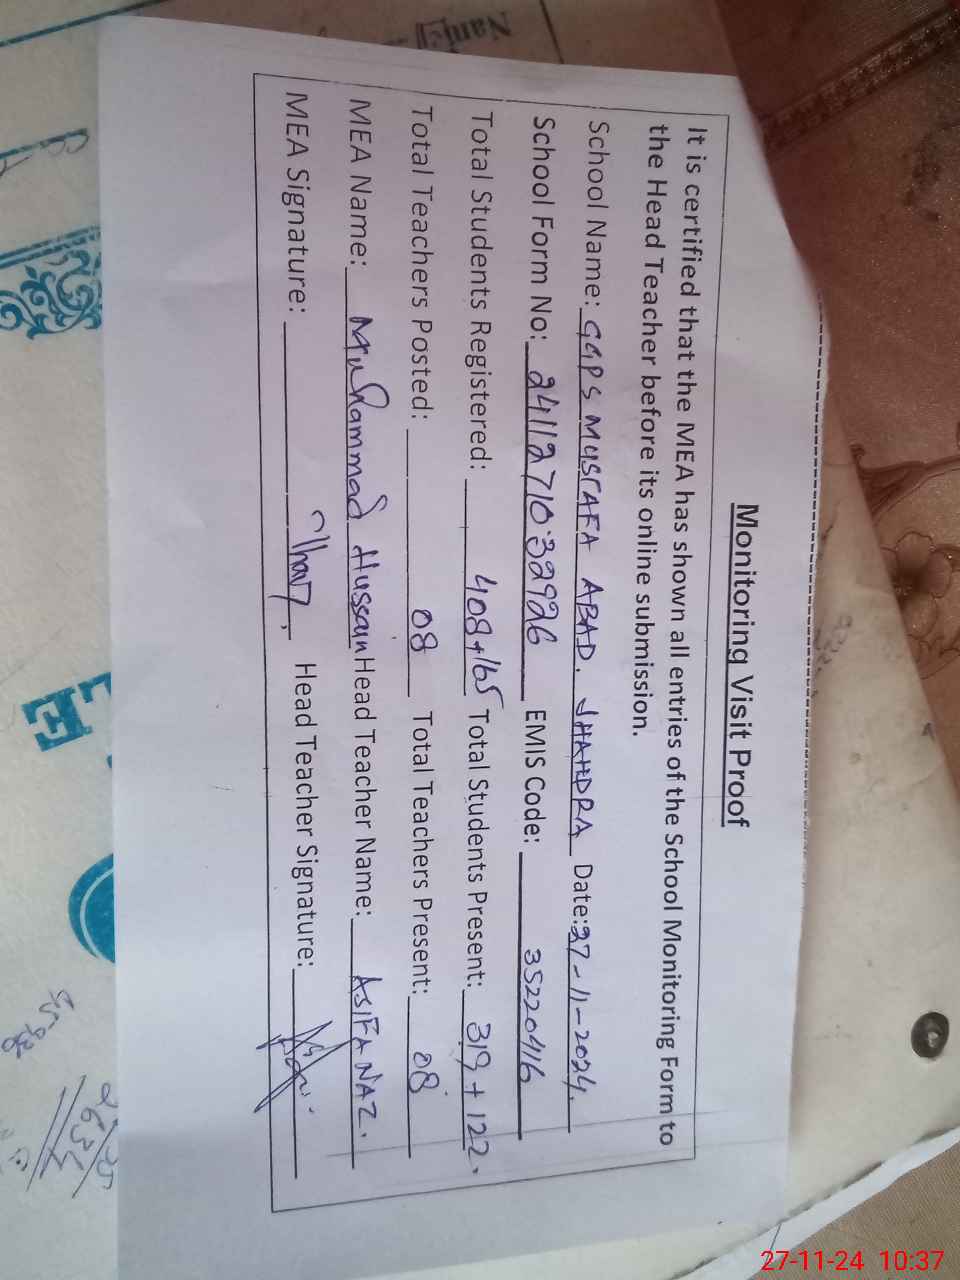 Monitoring Visit Proof
It is certified that the MEA has shown all entries of the School Monitoring Form to
the Head Teacher before its online submission.
School Name: GGPS MUSTAFA ABAD. JHAHDRA Date: 27-11-2024.
School Form No: 2411271032926 EMIS Code: 35220416
Total Students Registered: 408+165 Total Students Present: 319+122.
Total Teachers Posted: 08 Total Teachers Present: 08
MEA Name: Muhammad Hussain Head Teacher Name: ASIFA NAZ.
MEA Signature: Head Teacher Signature:
27-11-24 10:37